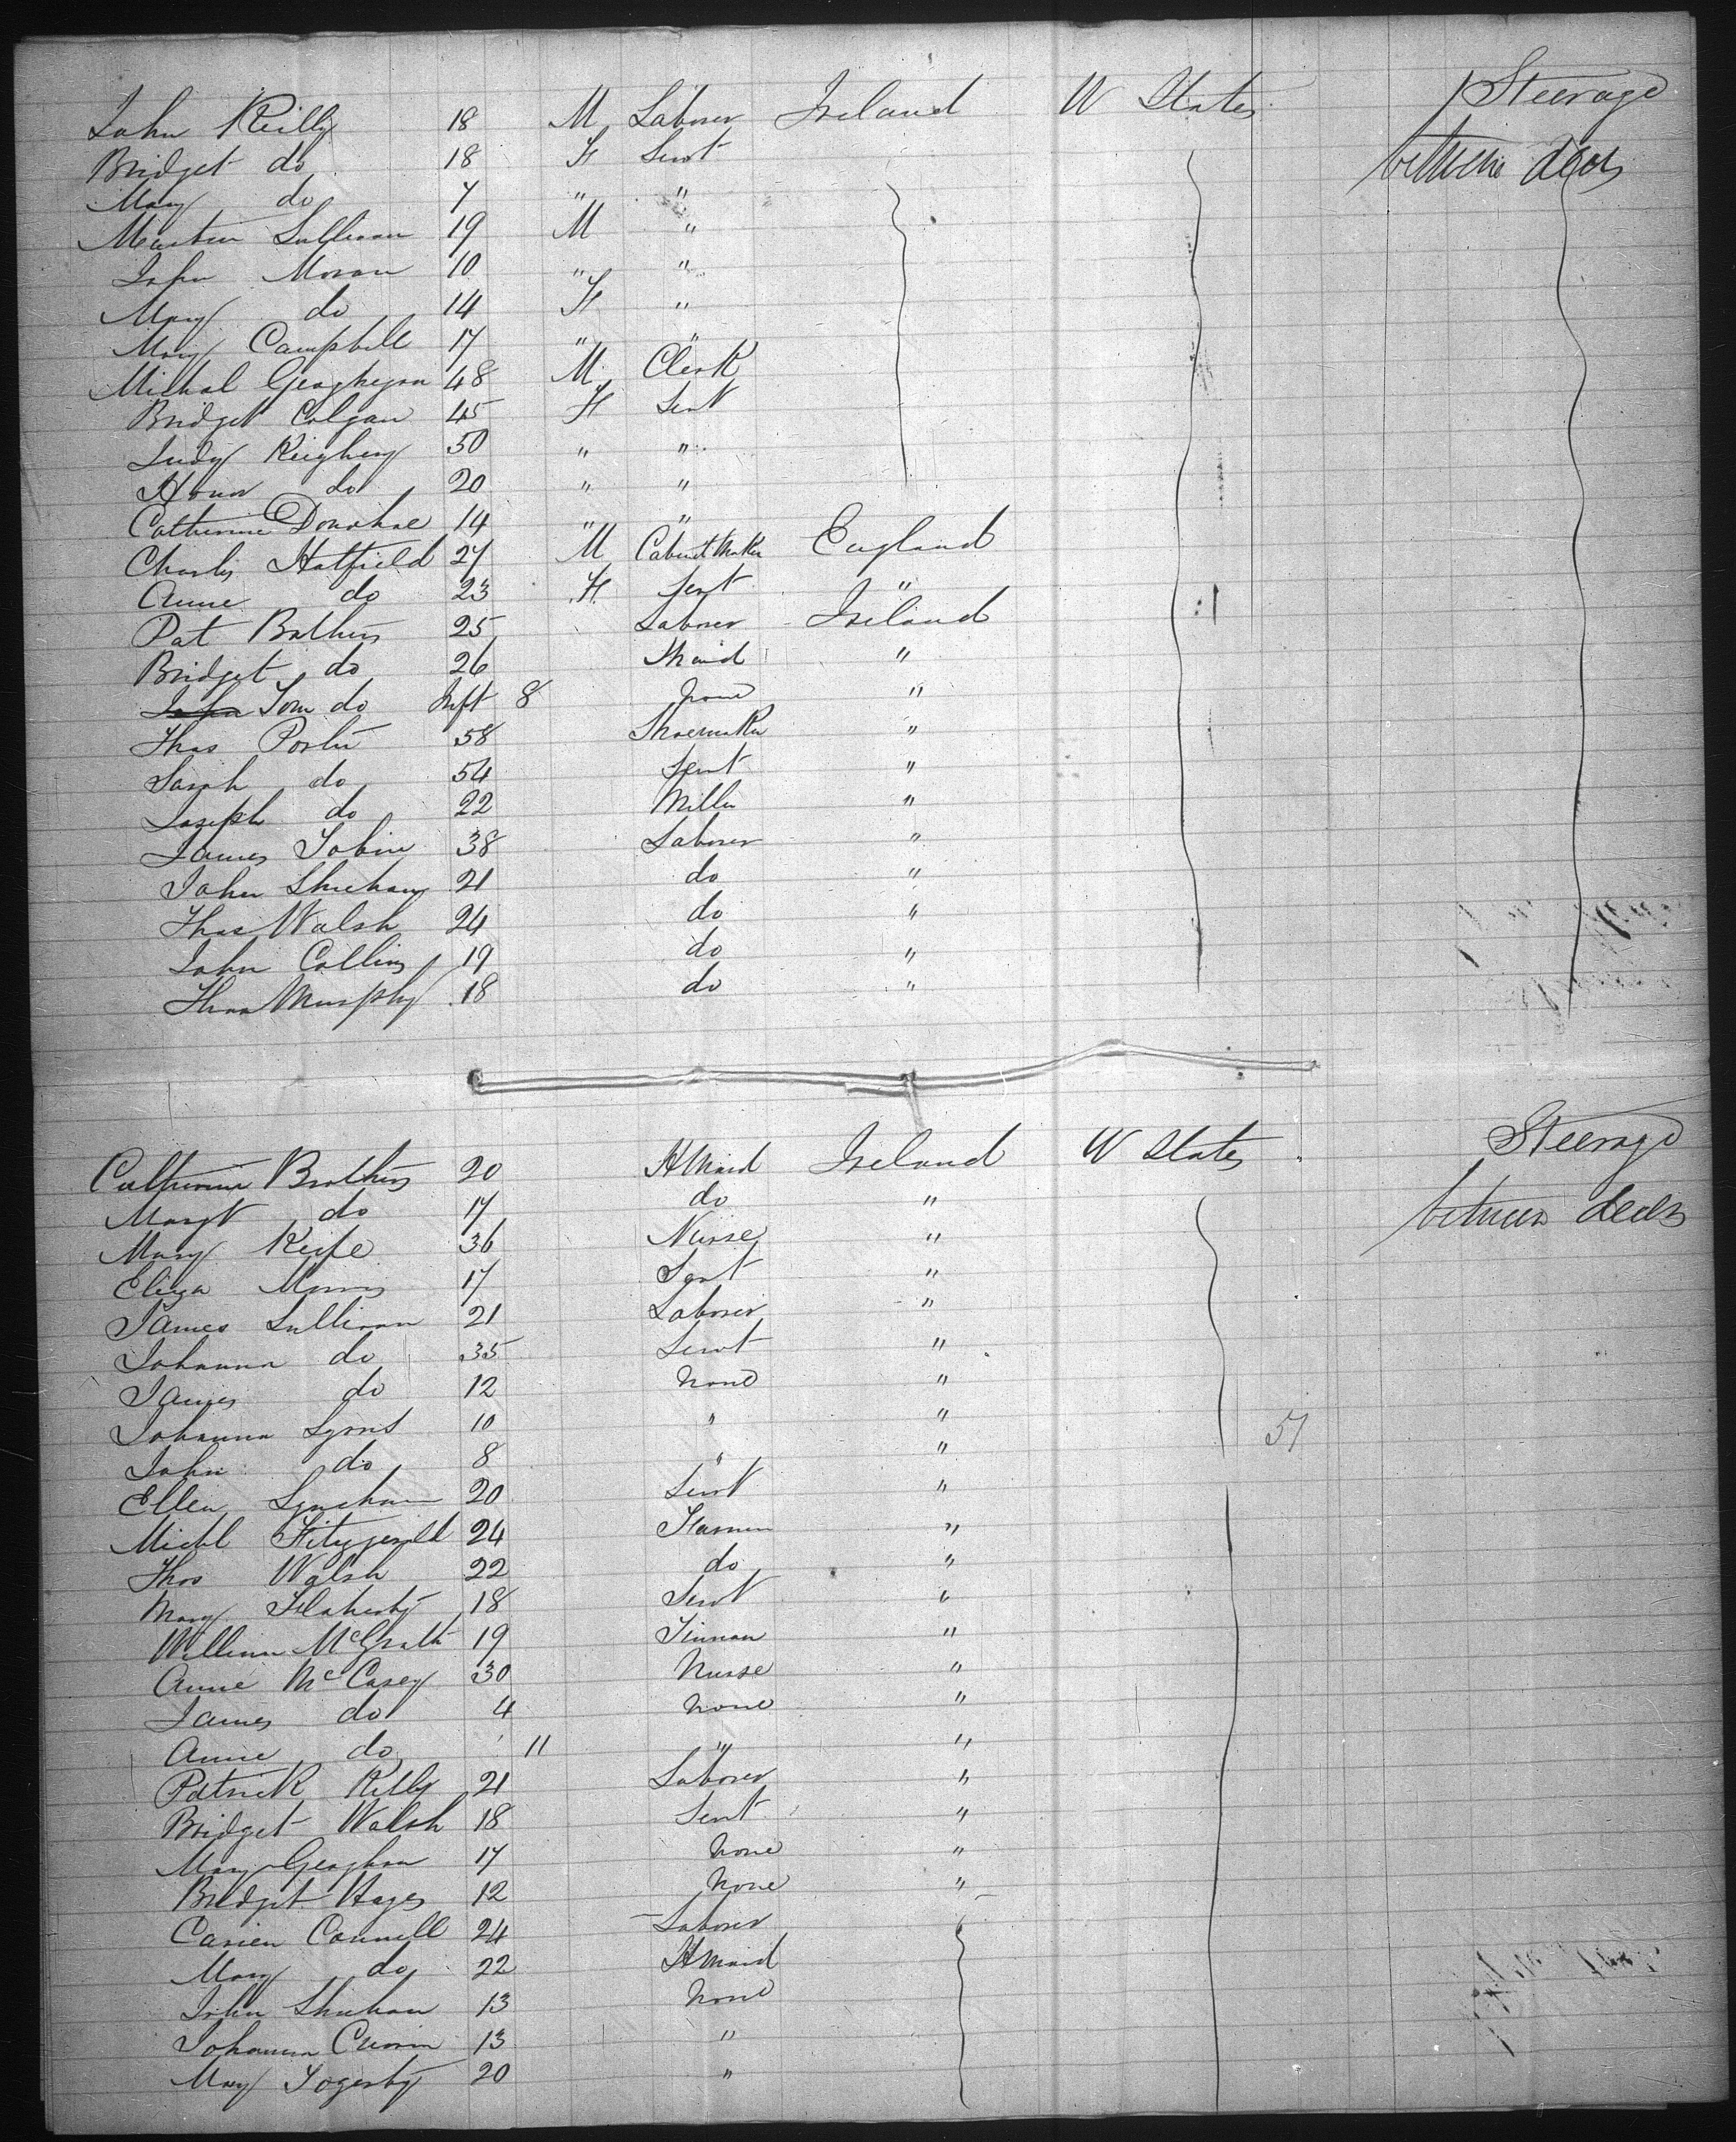 John Reilly 18 M Laborer Ireland U States Steerage
Bridget do 18 F Servt between decks
Mary do 7 " "
Martin Sullivan 19 M "
John Moran 10 " "
Mary do 14 F "
Mary Campbell 17 " "
Michal Geoghegan 48 M Clerk
Bridget Colgan 45 F Servt
Judy Keighery 50 " "
Honor do 20 " "
Catherine Donohoe 14 " "
Charles Hatfield 27 M Cabinet Maker England
Anne do 23 F Servt "
Pat Brothers 25 Laborer Ireland
Bridget do 26 Maid "
John Tom do Inft 8 none "
Thos Porter 58 Shoemaker "
Sarah do 54 Servt "
Joseph do 22 Miller "
James Tobin 38 Laborer "
John Sheehan 21 do "
Thos Walsh 24 do "
John Collins 19 do "
Thos Murphy 18 do "
Catherine Brothers 20 H Maid Ireland U States Steerage
Margt do 17 do " between decks
Mary Keife 36 Nurse "
Eliza Morris 17 Servt "
James Sullivan 21 Laborer "
Johanna do 35 Servt "
James do 12 none "
Johanna Lyons 10 " "
John do 8 " "
51
Ellen 20 Servt "
Michl Fitzgerald 24 Farmer "
Thos Walsh 22 do "
Mary Flaherty 18 Servt "
William McGrath 19 Tinman "
Anne McCasey 30 Nurse "
James do 4 none "
Anne do 11 " "
Patrick Kelly 21 Laborer "
Bridget Walsh 18 Servt "
Mary Geoghan 17 none "
Bridget Hayes 12 none "
Connell 24 Laborer
Mary do 22 H Maid
John Sheehan 13 none
Johanna 13 "
Mary Fogerty 20 "